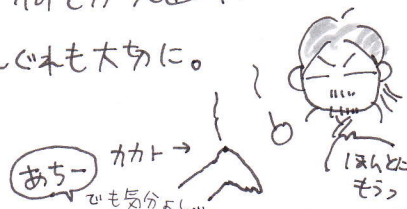 ぐれも大切に。
カカト→
あちー
でも気分よし…
ほんとに
もうっ